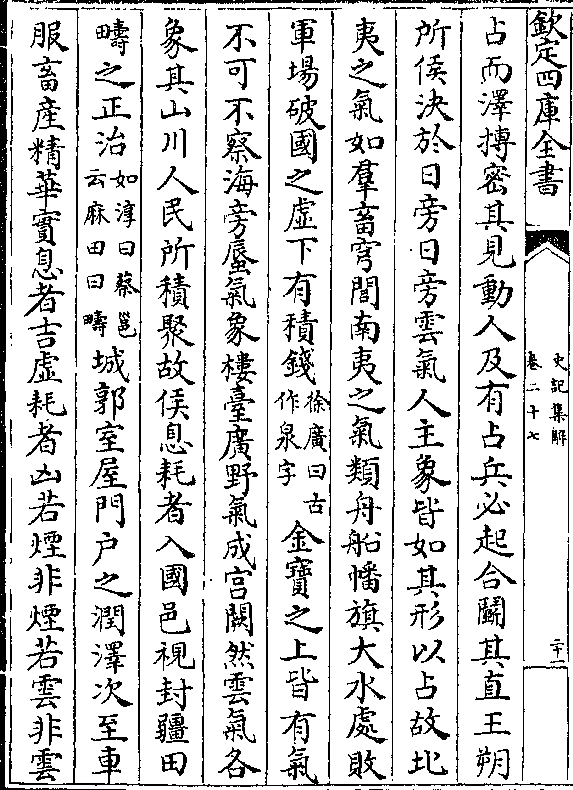 欽定四庫全書
史記集解
卷二十七
二十一
占而澤搏密其見動人及有占兵必起合鬭其直王朔
所侯決於日旁日旁雲氣人主象皆如其形以占故北
夷之氣如羣畜穹閭南夷之氣類舟船幡旗大水處敗
軍場破國之虛下有積錢徐廣曰古作泉字金寶之上皆有氣
不可不察海旁蜃氣象樓臺廣野氣成宫闕然雲氣各
象其山川人民所積聚故侯息耗者入國邑視封疆田
疇之正治如淳曰蔡邕云麻田曰疇城郭室屋門户之潤澤次至車
服畜産精華實息者吉虛耗者凶若煙非煙若雲非雲